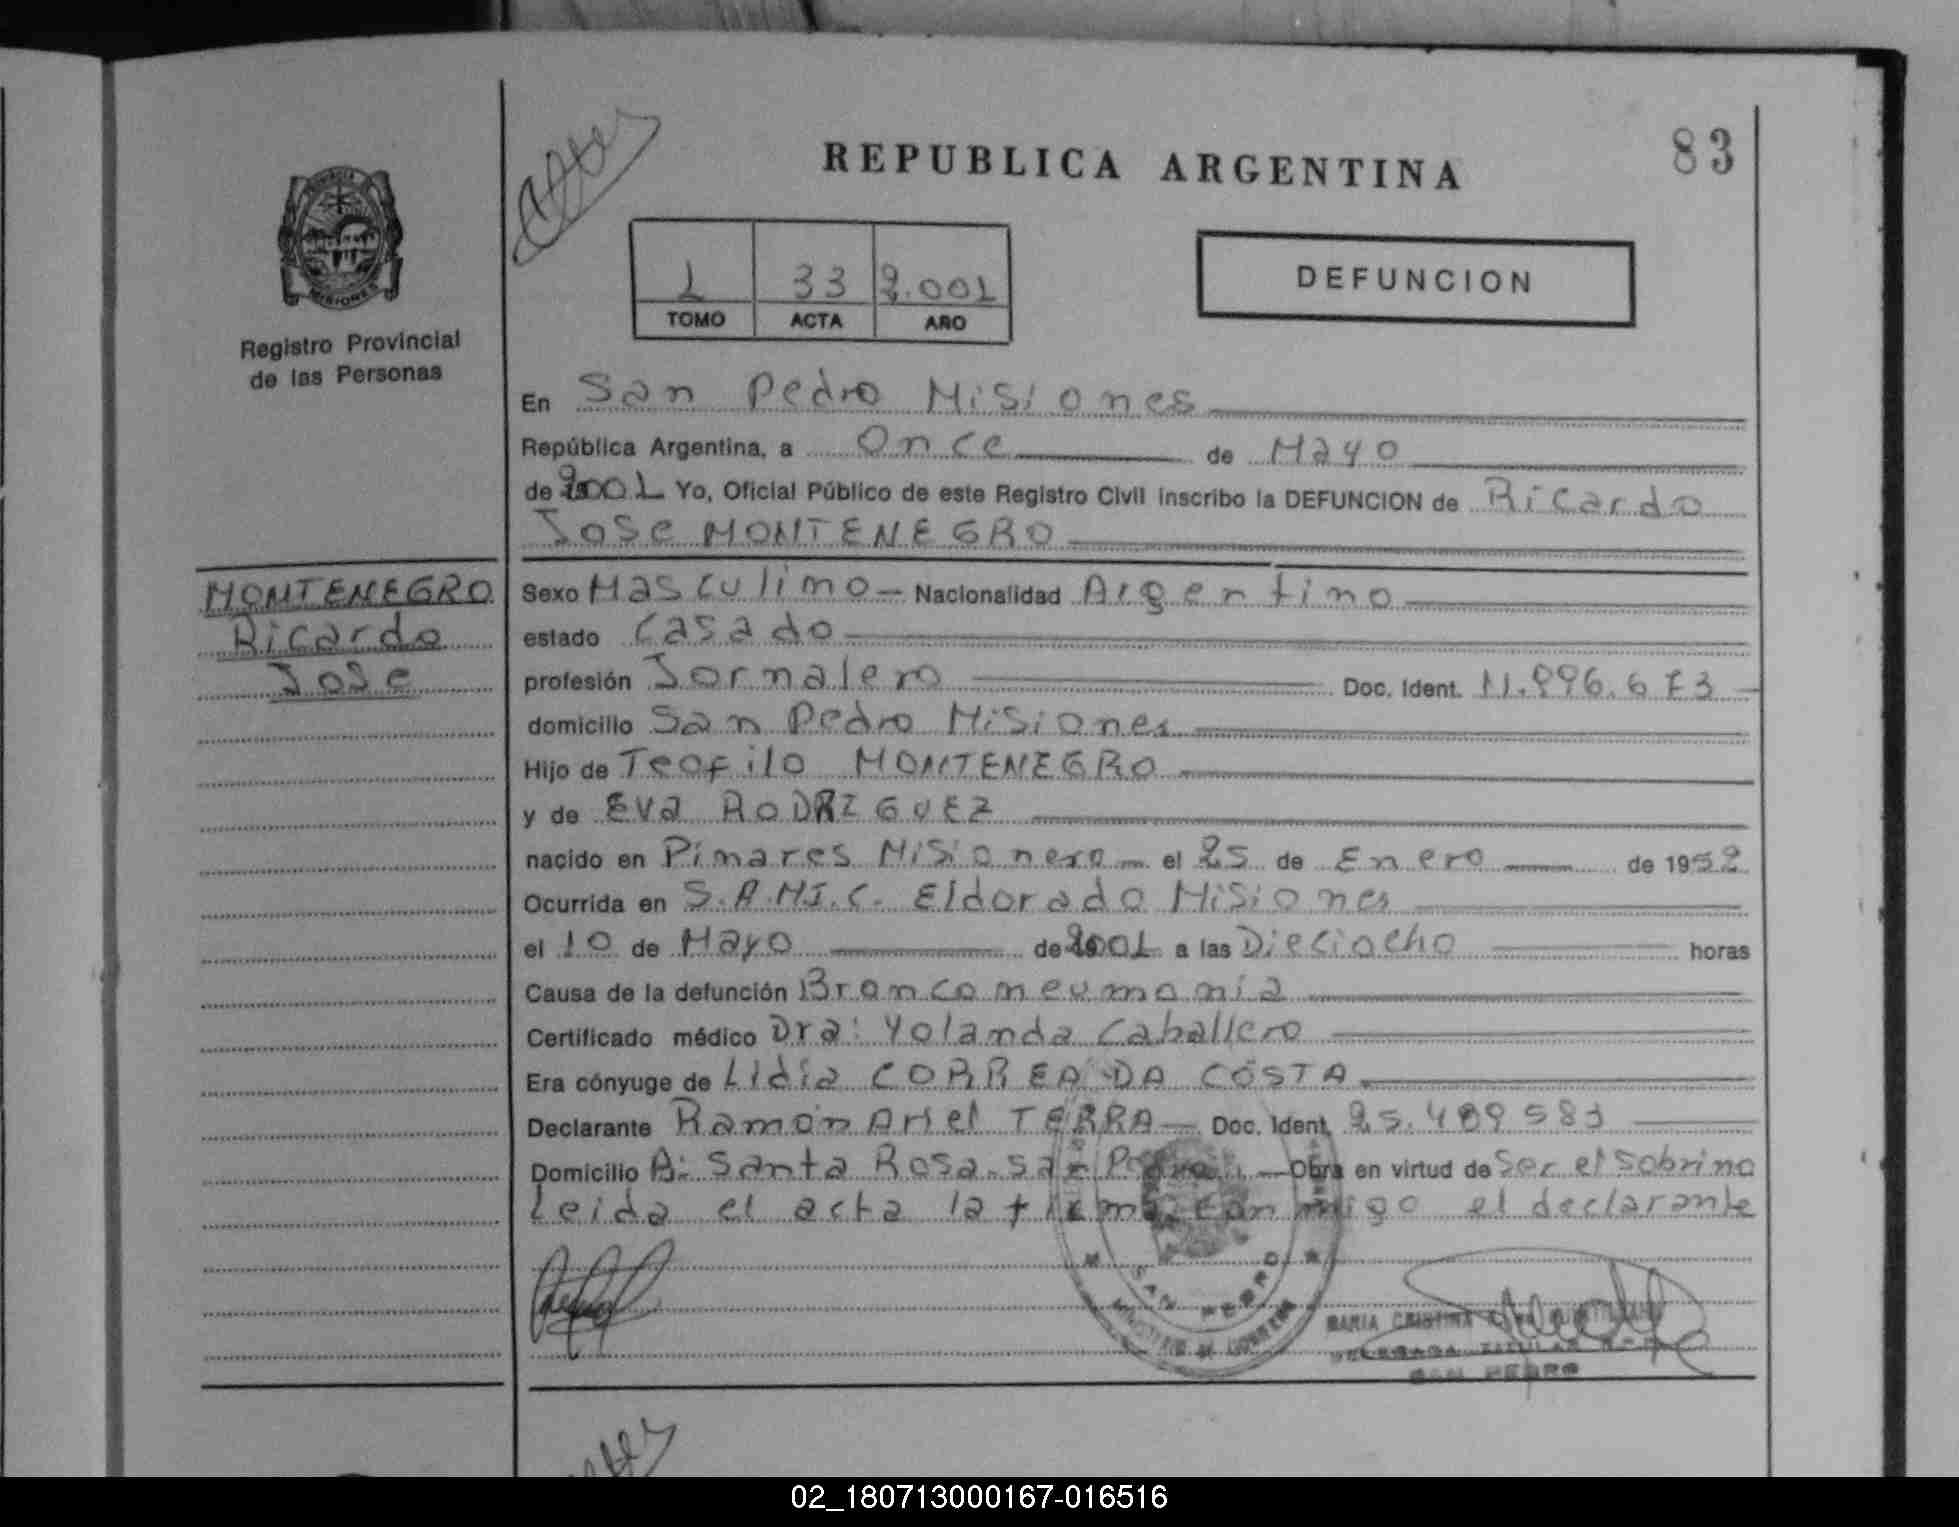 83
REPUBLICA ARGENTINA
PROVINCIA DE
MISIONES
Registro Provincial
de las Personas
1 33 2.001
TOMO ACTA AÑO
DEFUNCION
En San Pedro Misiones
República Argentina, a Once de Mayo
de 2001 Yo, Oficial Público de este Registro Civil inscribo la DEFUNCION de Ricardo
Jose MONTENEGRO
MONTENEGRO
Ricardo
Jose
Sexo Masculino - Nacionalidad Argentino
estado Casado
profesión Jornalero Doc. Ident.
domicilio San Pedro Misiones
Hijo de Teofilo MONTENEGRO
y de Eva RODRIGUEZ
nacido en Pinares Misionero el 25 de Enero de 1952
Ocurrida en S.A.M.I.C. Eldorado Misiones
el 10 de Mayo de 2001 a las Dieciocho horas
Causa de la defunción Bronconeumonia
Certificado médico Dra: Yolanda Caballero
Era cónyuge de Lidia CORREA DA COSTA
Declarante Ramón Ariel TERRA - Doc. Ident. 25.489583
Domicilio A: Santa Rosa. San Pedro - Obra en virtud de Ser el sobrino
Leida el acta la firma conmigo el declarante
SAN PEDRO
MINISTERIO DE GOBIERNO
MARIA CRISTINA
DELEGADA TITULAR R.P.P.
SAN PEDRO
02_180713000167-016516